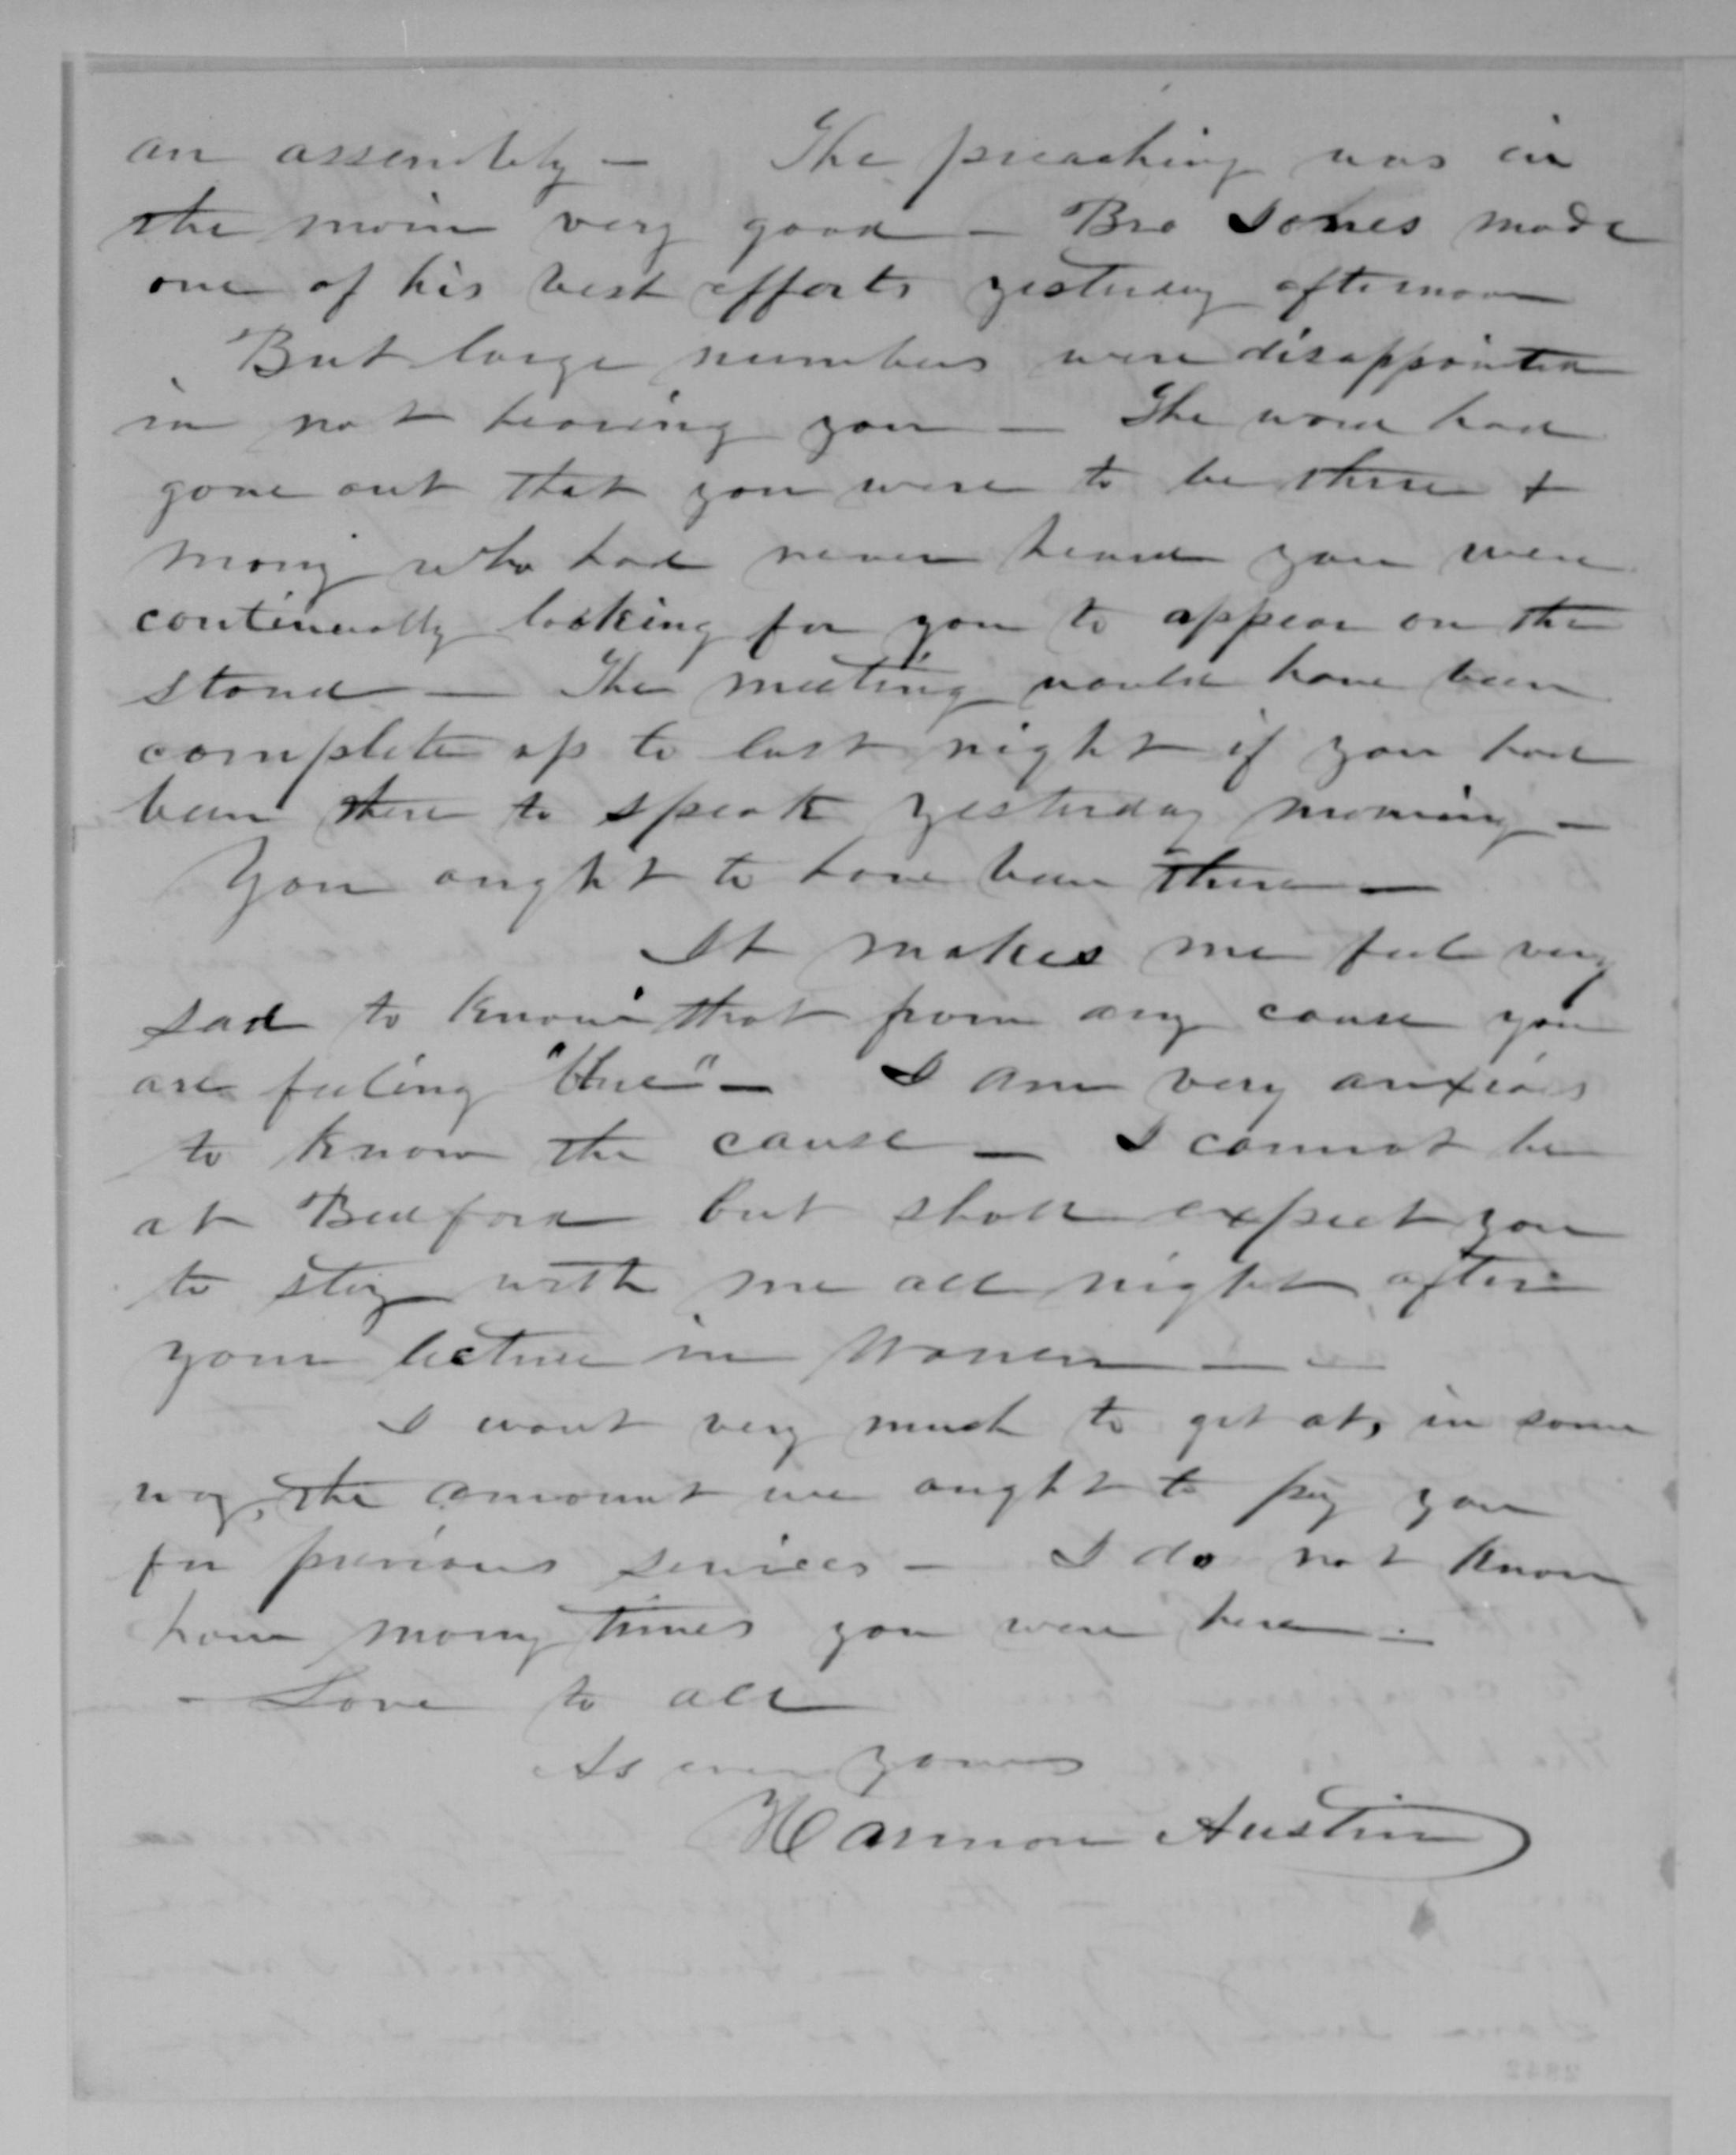 an assembly — The preaching was in
the main very good — Bro Jones made
one of his best efforts yesterday afternoon
But large numbers were disappointed
in not hearing you — The word had
gone out that you were to be there &
many who had never heard you were
continually looking for you to appear on the
stand — The meeting would have been
complete up to last night if you had
been there to speak yesterday morning —
You ought to have been there —
It makes me feel very
sad to know that from any cause you
are feeling "blue" — I am very anxious
to know the cause — I cannot be
at Bedford but shall expect you
to stay with me all night after
your lecture in Warren —
I want very much to get at, in some
way, the amount we ought to pay you
for previous services — I do not know
how many times you were here —
- Love to all
As ever yours
Harmon Austin